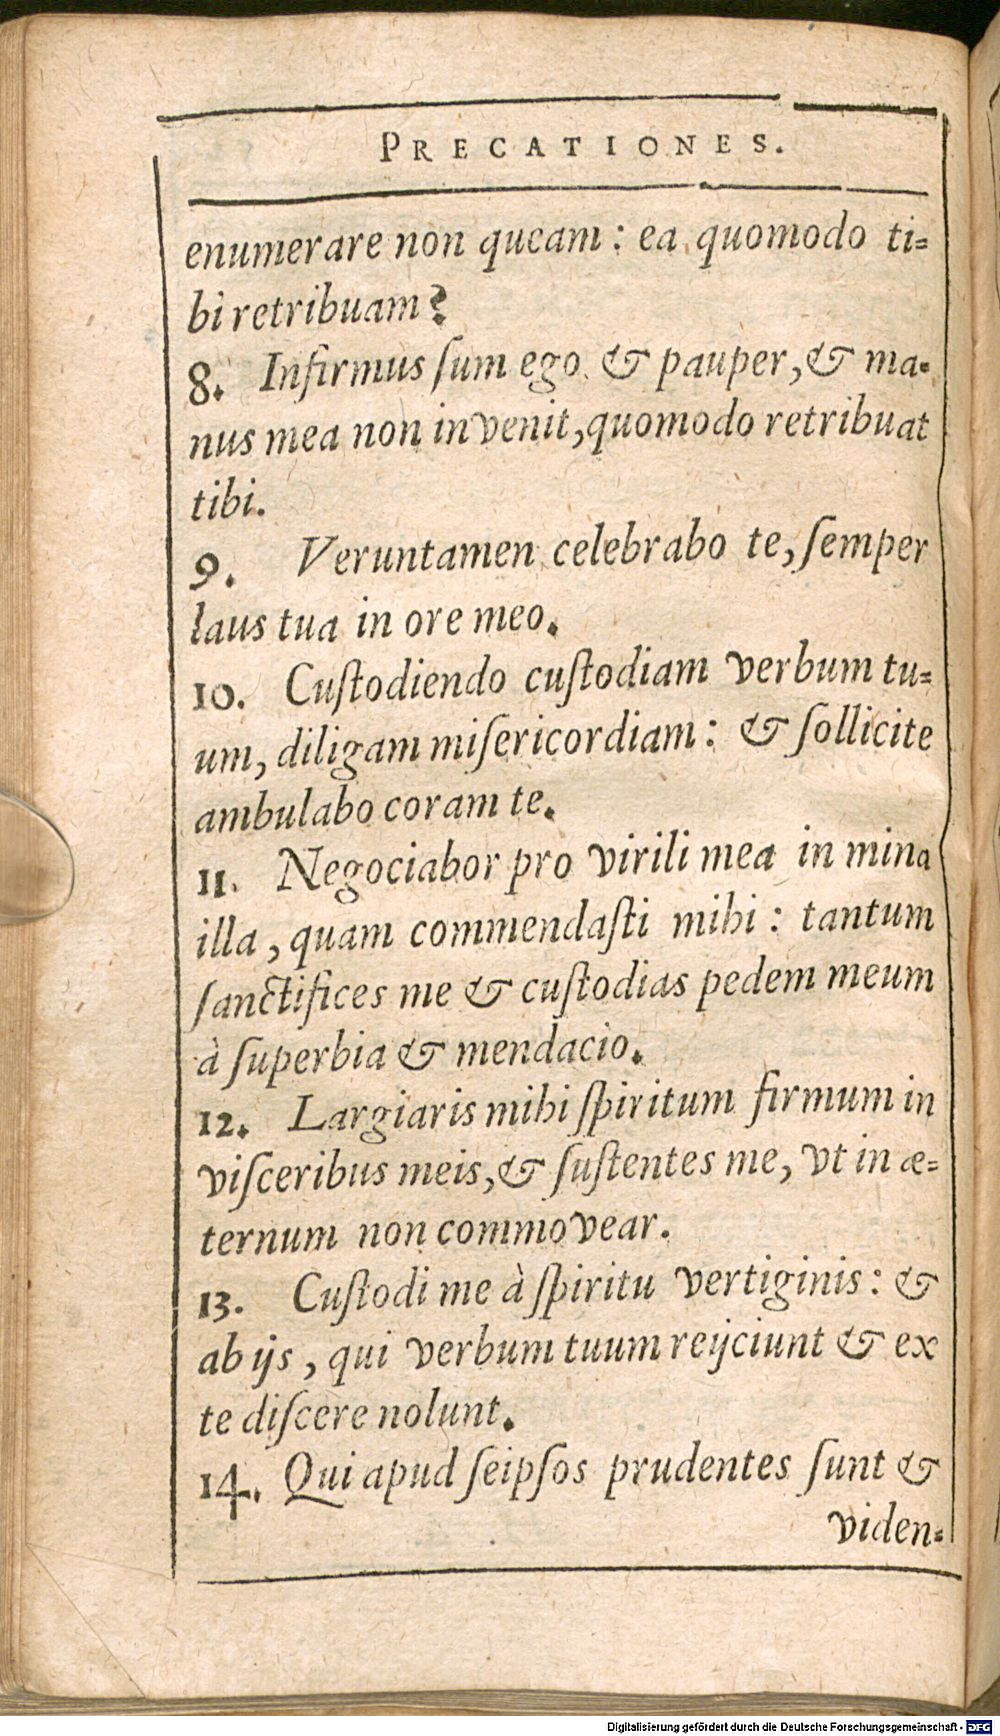 PRECATIONES.
enumerare non queam: ea quomodo ti-
bi retribuam?
8. Infirmus ſum ego & pauper, & ma-
nus mea non invenit, quomodo retribuat
tibi.
9. Veruntamen celebrabo te, ſemper
laus tua in ore meo.
10. Cuſtodiendo cuſtodiam verbum tu-
um, diligam miſericordiam: & ſollicite
ambulabo coram te.
11. Negociabor pro virili mea in mina
illa, quam commendaſti mihi: tantum
ſanctifices me & cuſtodias pedem meum
à ſuperbia & mendacio.
12. Largiaris mihi ſpiritum firmum in
viſceribus meis, & ſuſtentes me, vt in æ-
ternum non commovear.
13. Cuſtodi me à ſpiritu vertiginis: &
ab ijs, qui verbum tuum reijciunt & ex
te diſcere nolunt.
14. Qui apud ſeipſos prudentes ſunt &
viden-
Digitalisierung gefördert durch die Deutsche Forschungsgemeinschaft - DFG